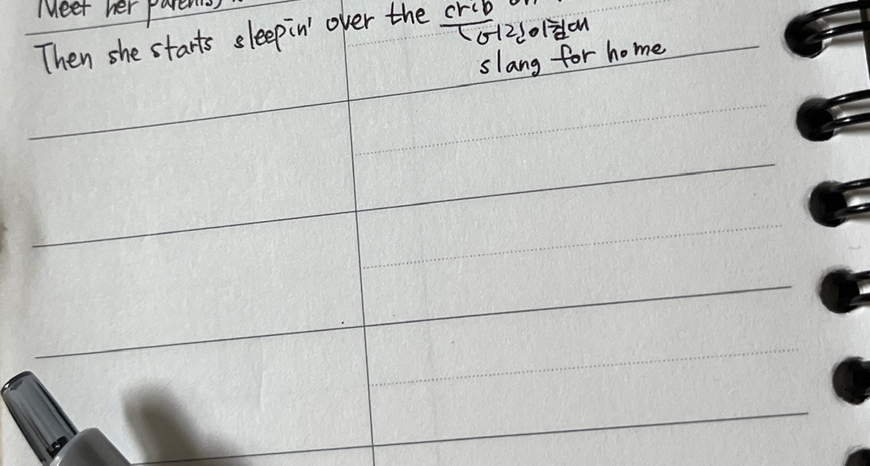 Meet her parents,
Then she starts sleepin' over the crib on
어린이침대
slang for home